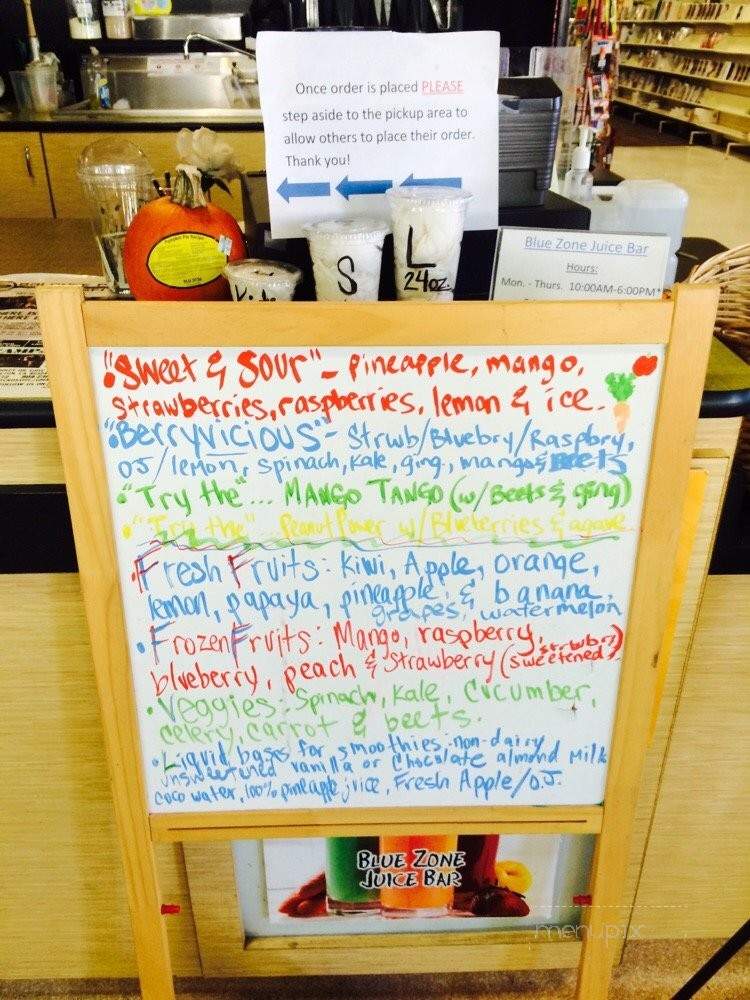 Once order is placed PLEASE
step aside to the pickup area to
allow others to place their order.
Thank you!
Kids
S
L
24oz.
Blue Zone Juice Bar
Hours:
Mon. - Thurs. 10:00AM-6:00PM*
"Sweet & Sour" - Pineapple, mango,
strawberries, raspberries, lemon & ice.
"Berryvicious" - Strwb/Bluebry/Raspbry,
OJ/lemon, spinach, kale, ging., mango & Beets
• "Try the"... MANGO TANGO (w/ Beets & ging)
• "Try the" Peanut Power w/ Blueberries & agave
• Fresh Fruits: Kiwi, Apple, orange,
lemon, papaya, pineapple, & banana,
grapes, watermelon
• Frozen Fruits: Mango, raspberry,
blueberry, peach & Strawberry (strwbry sweetened).
• Veggies: Spinach, Kale, Cucumber,
celery, carrot & beets.
• Liquid bases for smoothies - non-dairy
unsweetened vanilla or Chocolate almond Milk
coco water, 100% pineapple juice, Fresh Apple/O.J.
BLUE ZONE
JUICE BAR
menupix